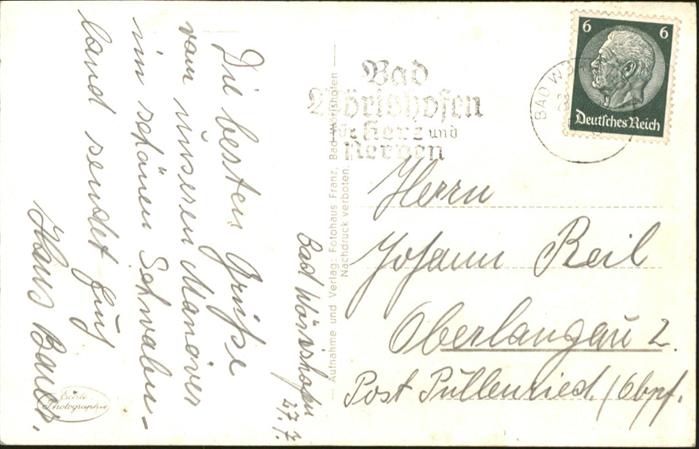 Die besten Grüße
vom unseren Manöver
im schönen Schwaben-
land sendet Euch
Hans Bauer.
Bad Wörishofen
Echte
Photographie
Aufnahme und Verlag: Fotohaus Franz, Bad Wörishofen
Nachdruck verboten.
Bad
Wörishofen
für Herz und
Nerven
BAD WÖ
6 6
Deutsches Reich
Herrn
Johann Beil
Oberlangau 2.
Post Pullenried /Obpf.